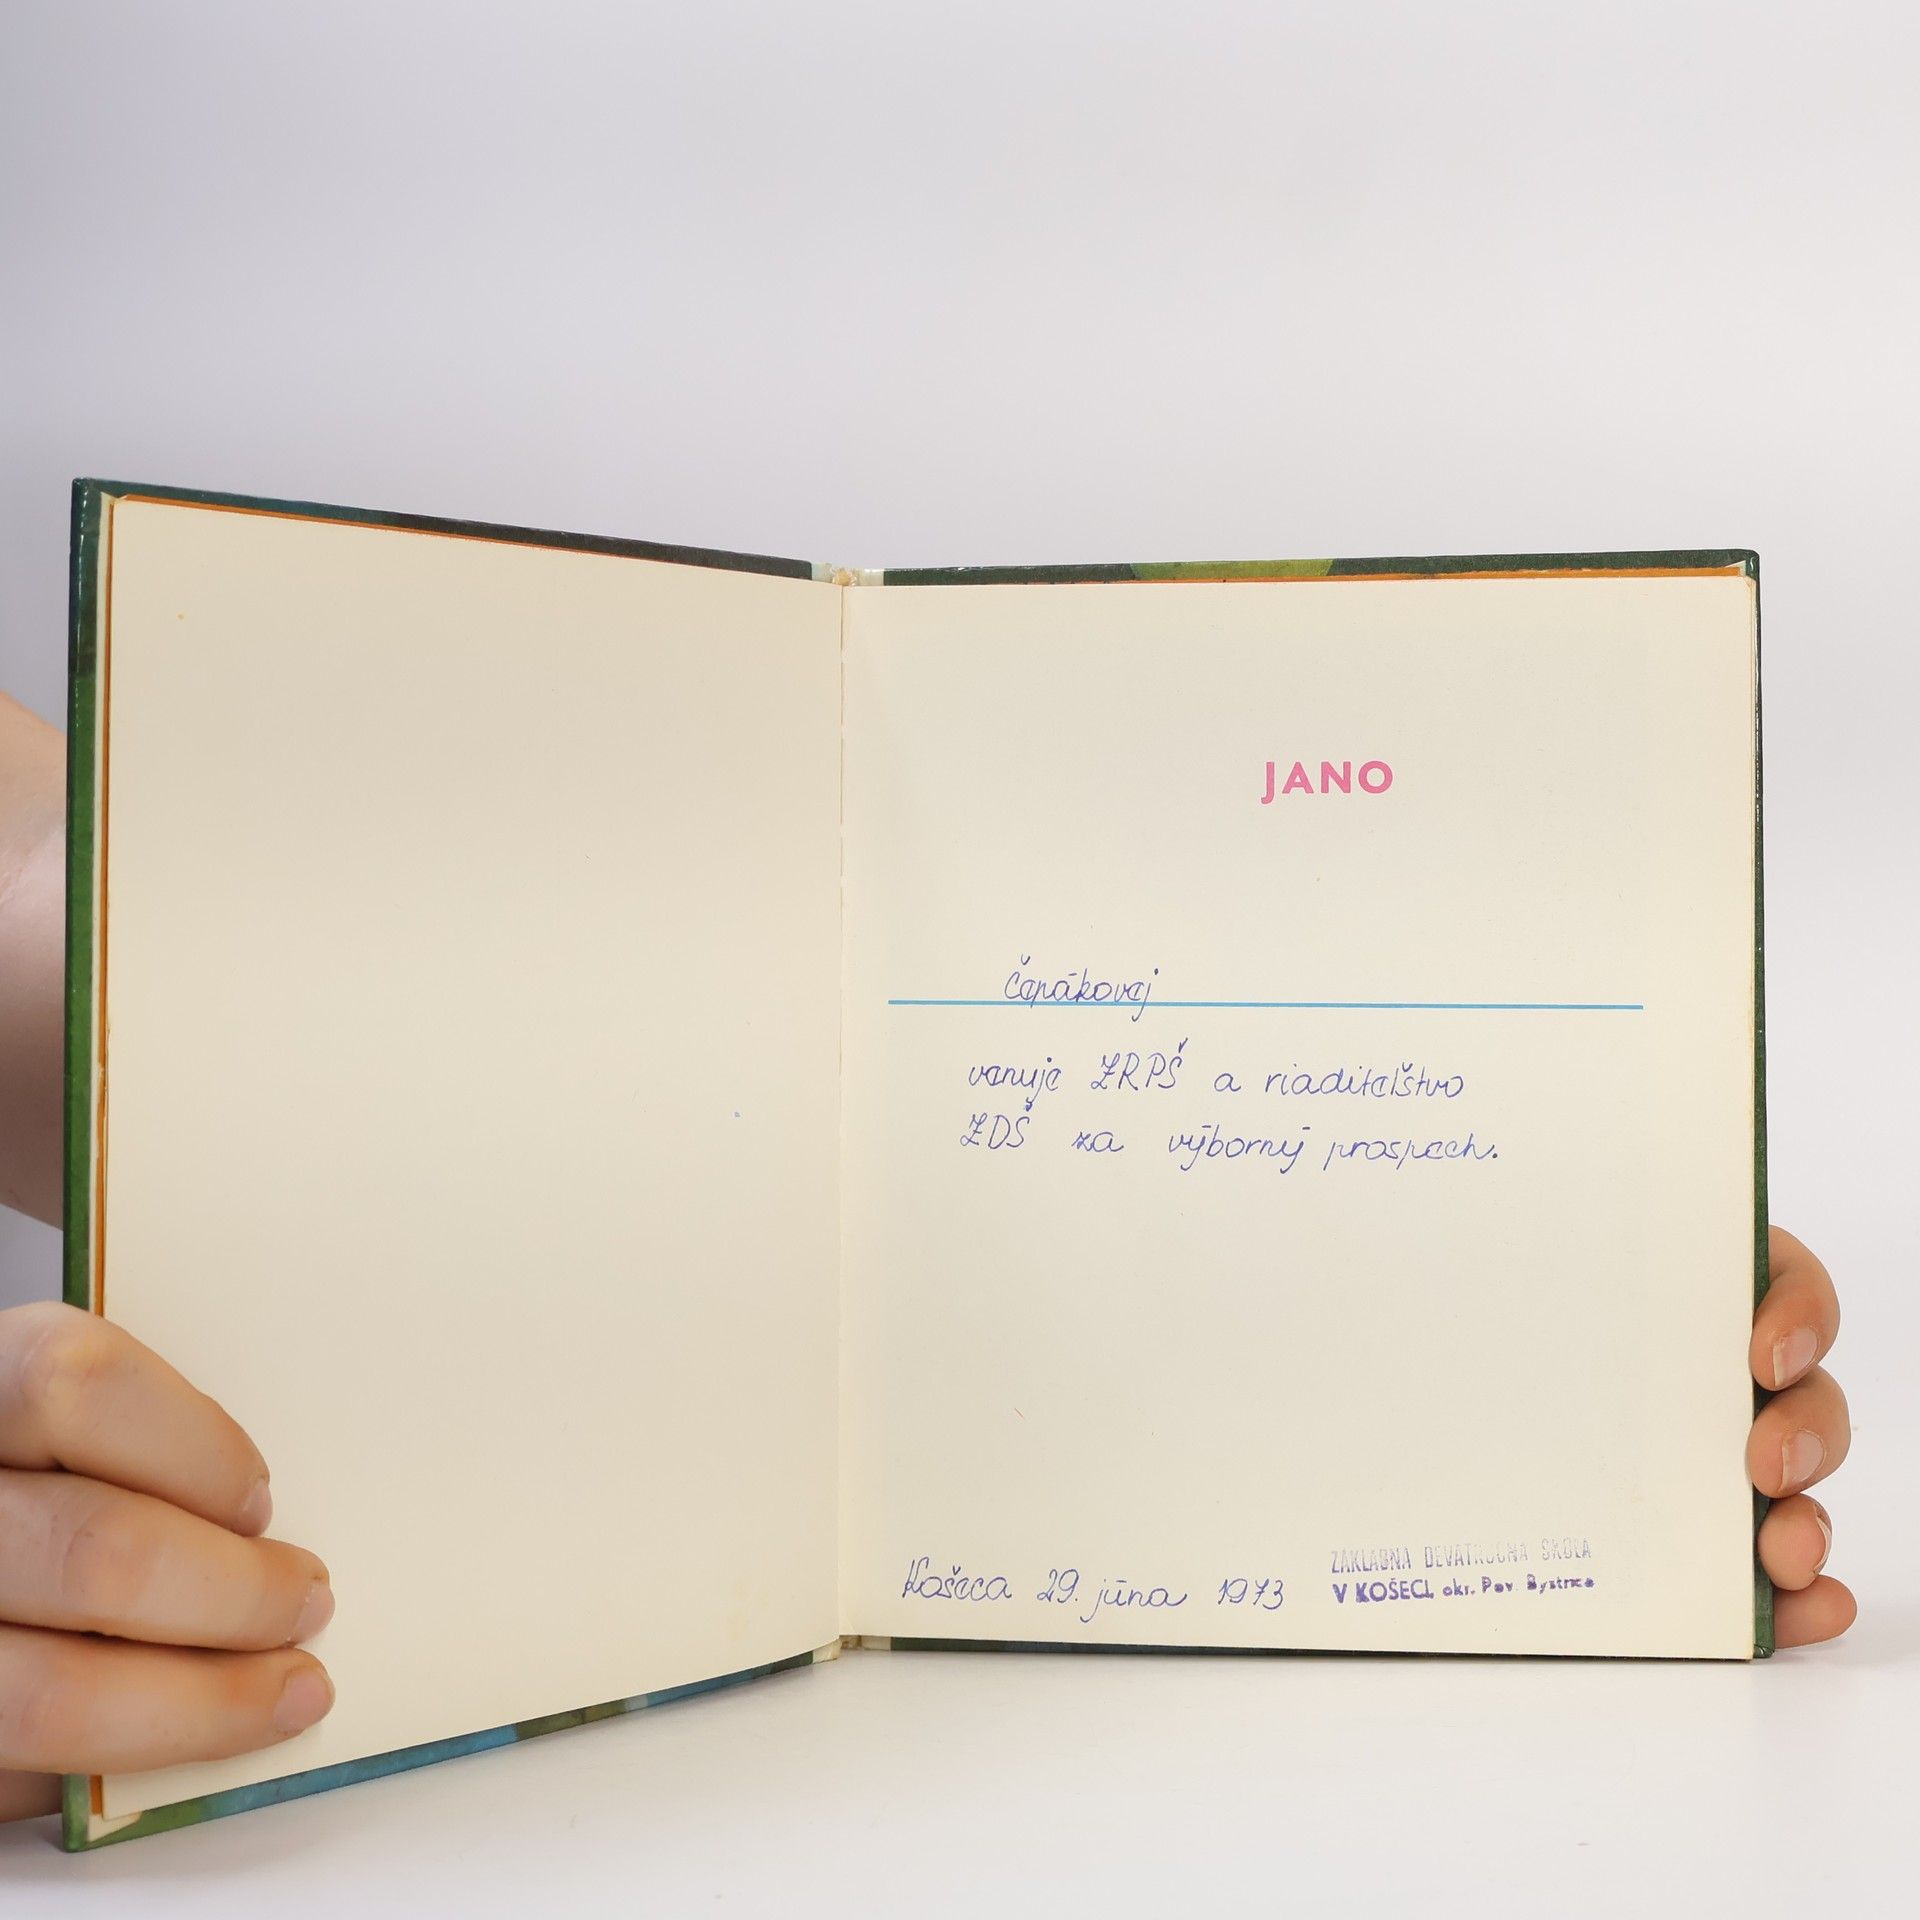 JANO
Čepákovej
venuje ZRPŠ a riaditelštvo
ZDŠ za výborný prospech.
Košeca 29. júna 1973
ZÁKLADNÁ DEVAŤROČNÁ ŠKOLA
V KOŠECI, okr. Pov. Bystrica